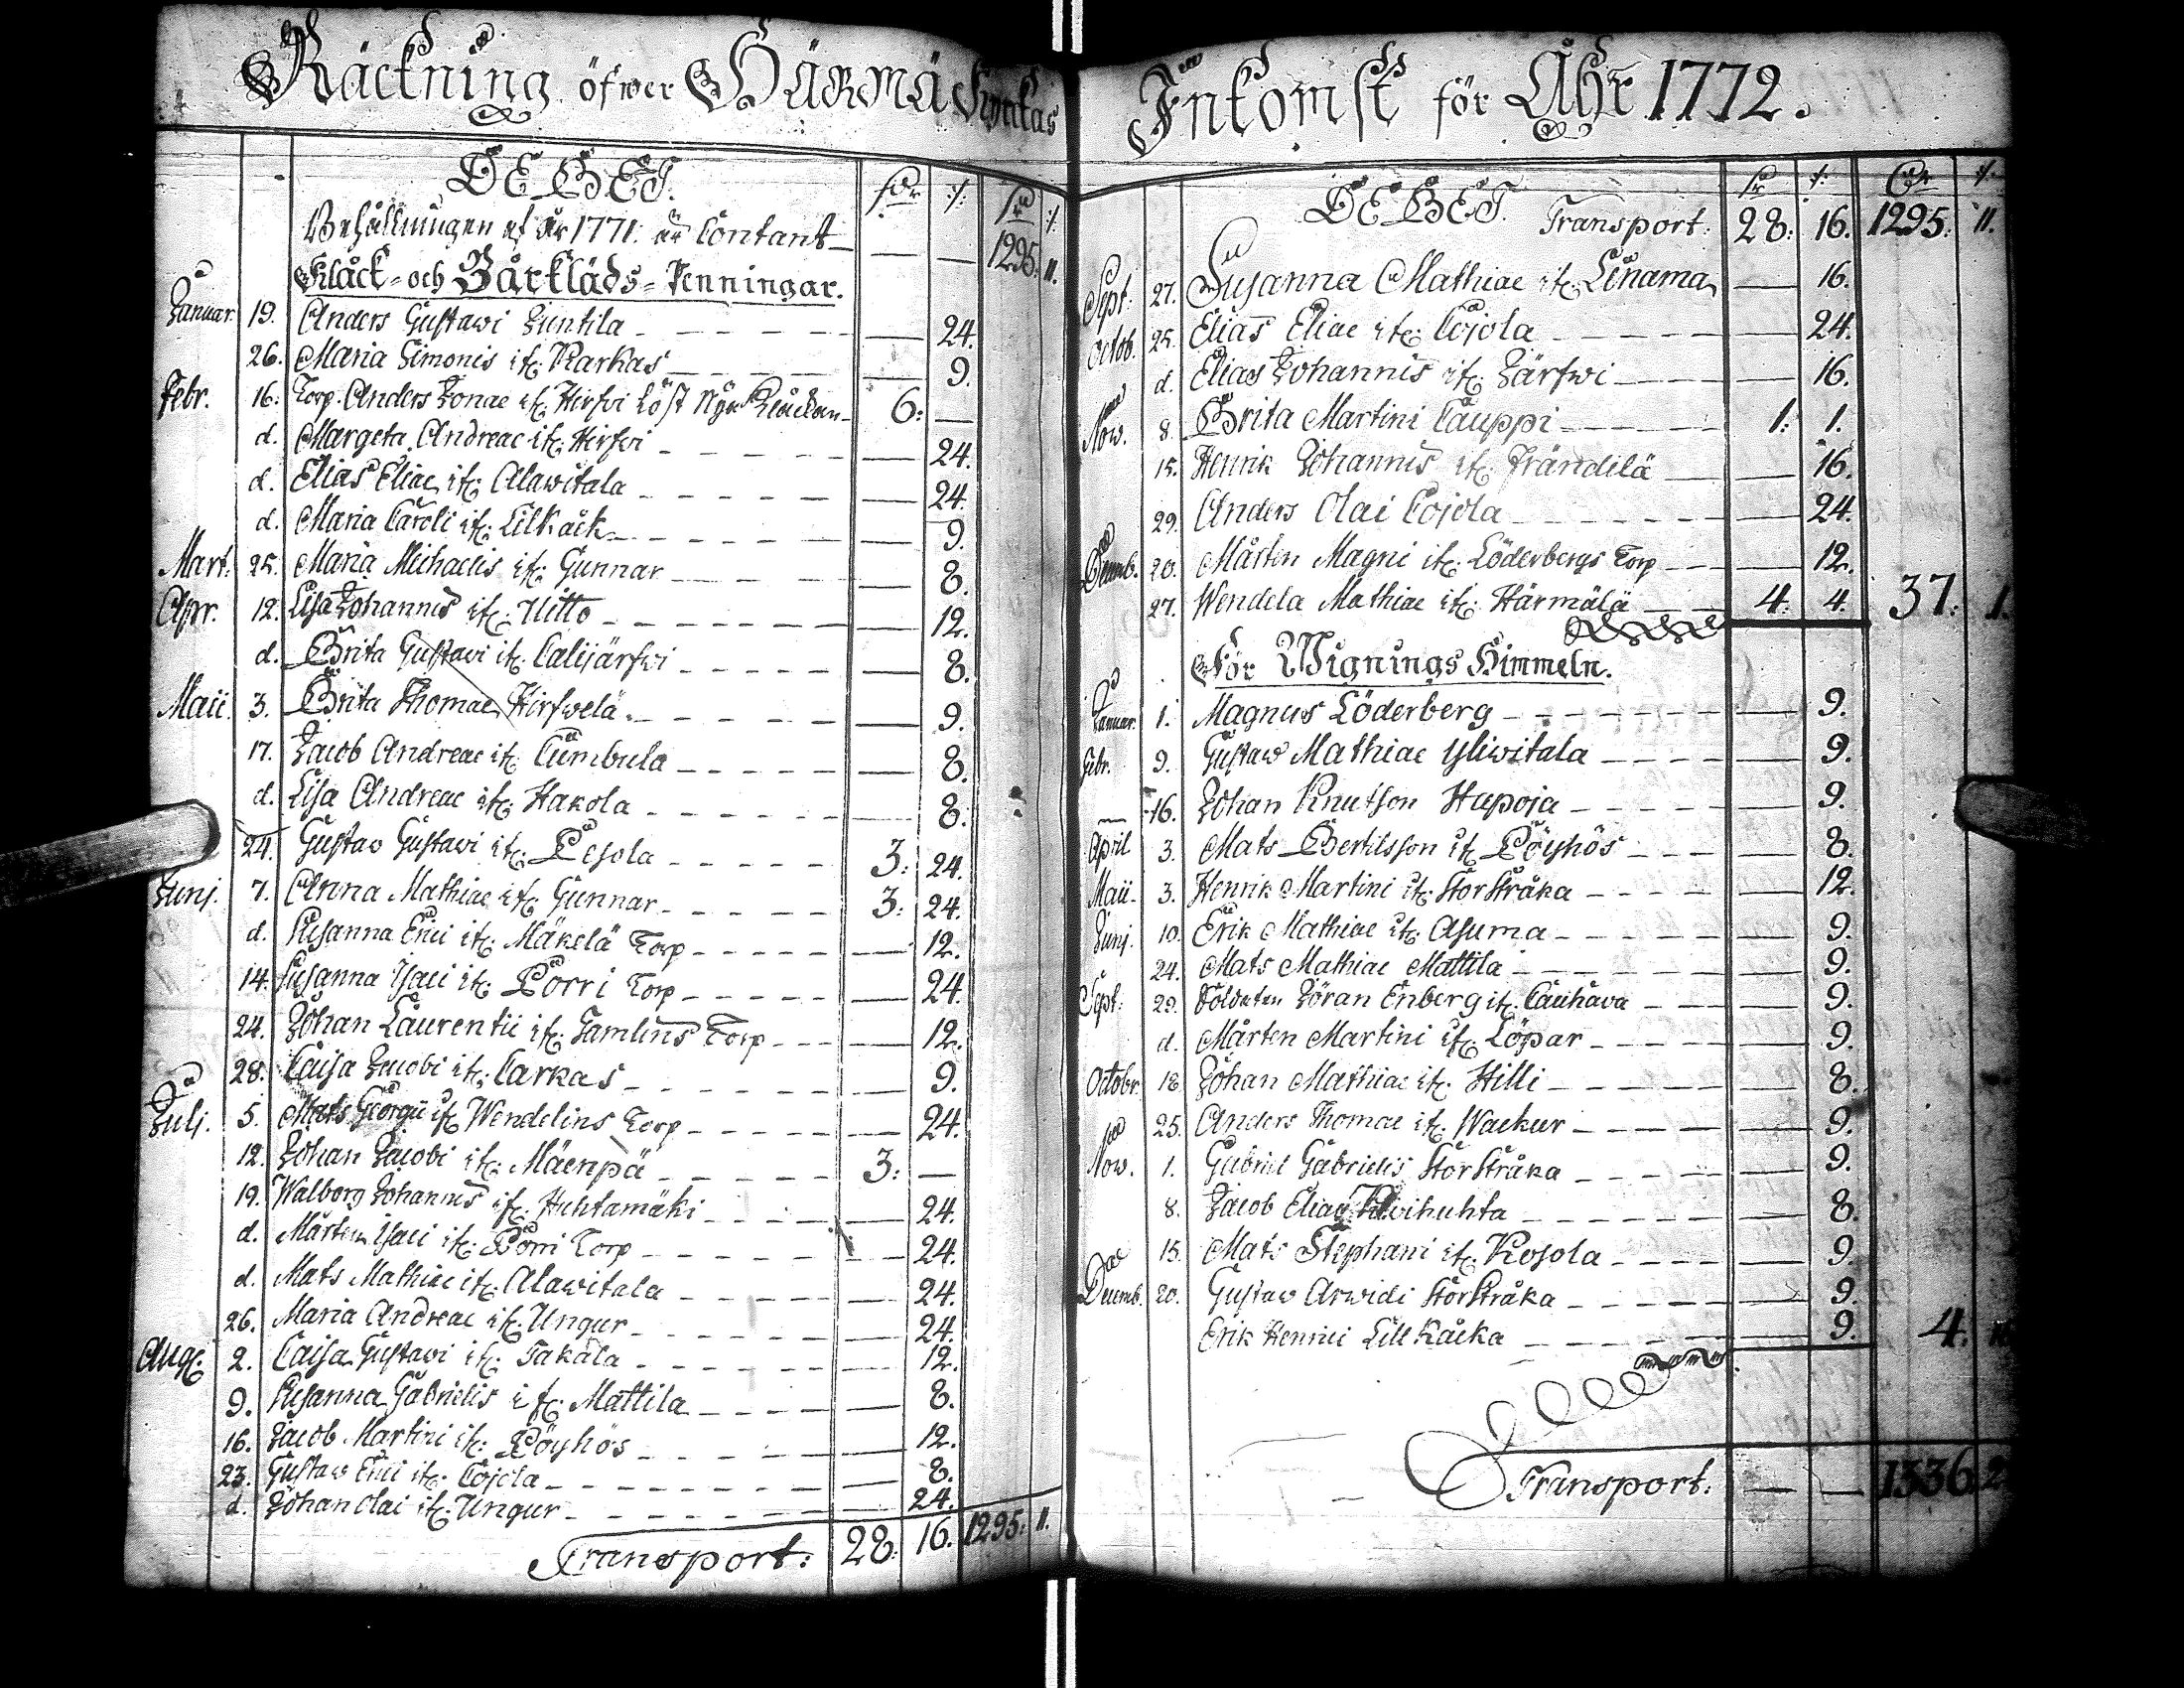 Räckning öfwer Härmä Kyrckas
DEBET.
Behållningen af År 1771. är Contant — — 1295: 11.
Klåck- och Bårkläds-Penningar.
Januar. 19. Anders Gustawi Juntila — 24.
26. Maria Simonis if: Karkas — 9.
Febr. 16. Torp. Anders Jonae if: Hirfvi löst Nya Klåckan 6: —
d. Margeta Andreae if: Hirfvi — 24.
d. Elias Eliae if: Alawitala — 24.
d. Maria Caroli if: Lilkåck — 9.
Mart. 25. Maria Michaelis if: Gunnar — 8.
Apr. 12. Lisa Johannis if: Uitto — 12.
d. Brita Gustavi if: Calijärfvi — 8.
Maii. 3. Brita Thomae Hirfwelä — 9.
17. Jacob Andreae if: Cumbula — 8.
d. Lisa Andreae if: Hakola — 8.
24. Gustav Gustavi if: Pesola 3: 24.
Junj. 7. Anna Mathiae if: Gunnar 3: 24.
d. Susanna Erici if: Mäkelä Torp — 12.
14. Susanna Isaci if: Porri Torp — 24.
24. Johan Laurentii if: Tamlins Torp — 12.
28. Caisa Jacobi if: Carkas — 9.
Julj. 5. Mats Georgii if: Wendelins Torp — 24.
12. Johan Jacobi if: Mäenpä 3: —
19. Walborg Johannis if: Huhtamäki — 24.
d. Mårten Isaci if: Porri Torp — 24.
d. Mats Mathiae if: Alawitala — 24.
26. Maria Andreae if: Ungur — 24.
Aug: 2. Caisa Gustavi if: Takala — 12.
9. Susanna Gabrielis if: Mattila — 8.
16. Jacob Martini if: Pöyhös — 12.
23. Gustaw Erici if: Cojola — 8.
d. Johan Olai if: Ungur — 24.
Transport: 28: 16. 1295: 11.
Inkomst för Åhr 1772.
DEBET. Transport: 28: 16. 1295: 11.
Sept: 27. Susanna Mathiae if: Linama — 16.
Octob. 25. Elias Eliae if: Cojola — 24.
d. Elias Johannis if: Järfwi — 16.
Now. 8. Brita Martini Cauppi 1: 1.
15. Henrik Johannis if: Frändilä — 16.
29. Anders Olai Cojola — 24.
Decemb. 20. Mårten Magni if: Löderbergs Torp — 12.
27. Wendela Mathiae if: Härmälä 4: 4. 37: 1.
För Wignings Himmeln.
Januar. 1. Magnus Löderberg — 9.
Febr. 9. Gustaw Mathiae Yliwitala — 9.
— 16. Johan Knutson Hapoja — 9.
April 3. Mats Bertilsson if: Pöyhös — 8.
Maii 3. Henrik Martini if: Storstråka — 12.
Junj. 10. Erik Mathiae if: Asuma — 9.
24. Mats Mathiae Mattila — 9.
Sept: 29. Soldaten Jöran Enberg if: Cauhava — 9.
d. Mårten Martini if: Löpar — 9.
Octobr. 18. Johan Mathiae if: Hilli — 8.
25. Anders Thomae if: Wackur — 9.
Now. 1. Gabriel Gabrielis Storstråka — 9.
8. Jacob Eliae Kivihuhta — 8.
15. Mats Stephani if: Kosola — 9.
Decemb. 20. Gustav Arwidi Storstråka — 9.
Erik Henrici Lill Kåcka — 9. 4:
Transport: — — 1336